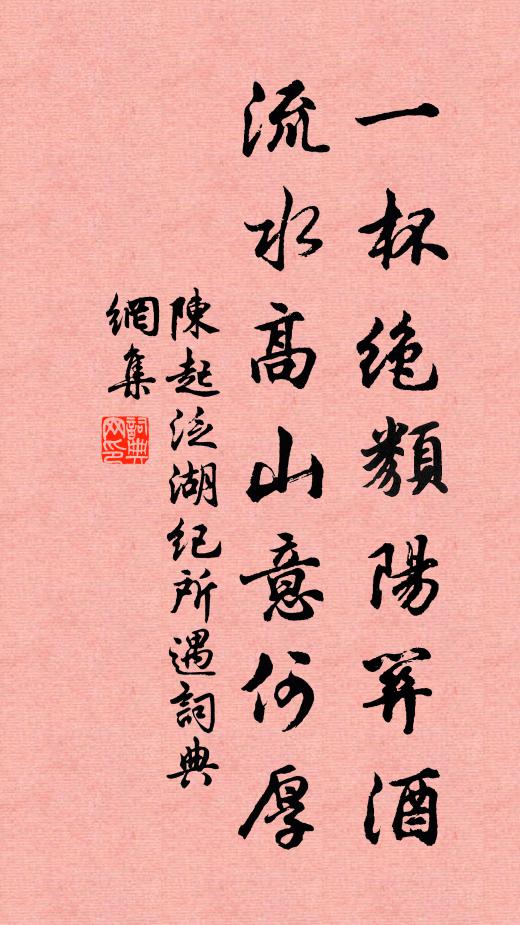 一杯絶類陽羨酒
流水高山意何厚
陳起泛湖紀所遇詞典
網集
詞典
网印